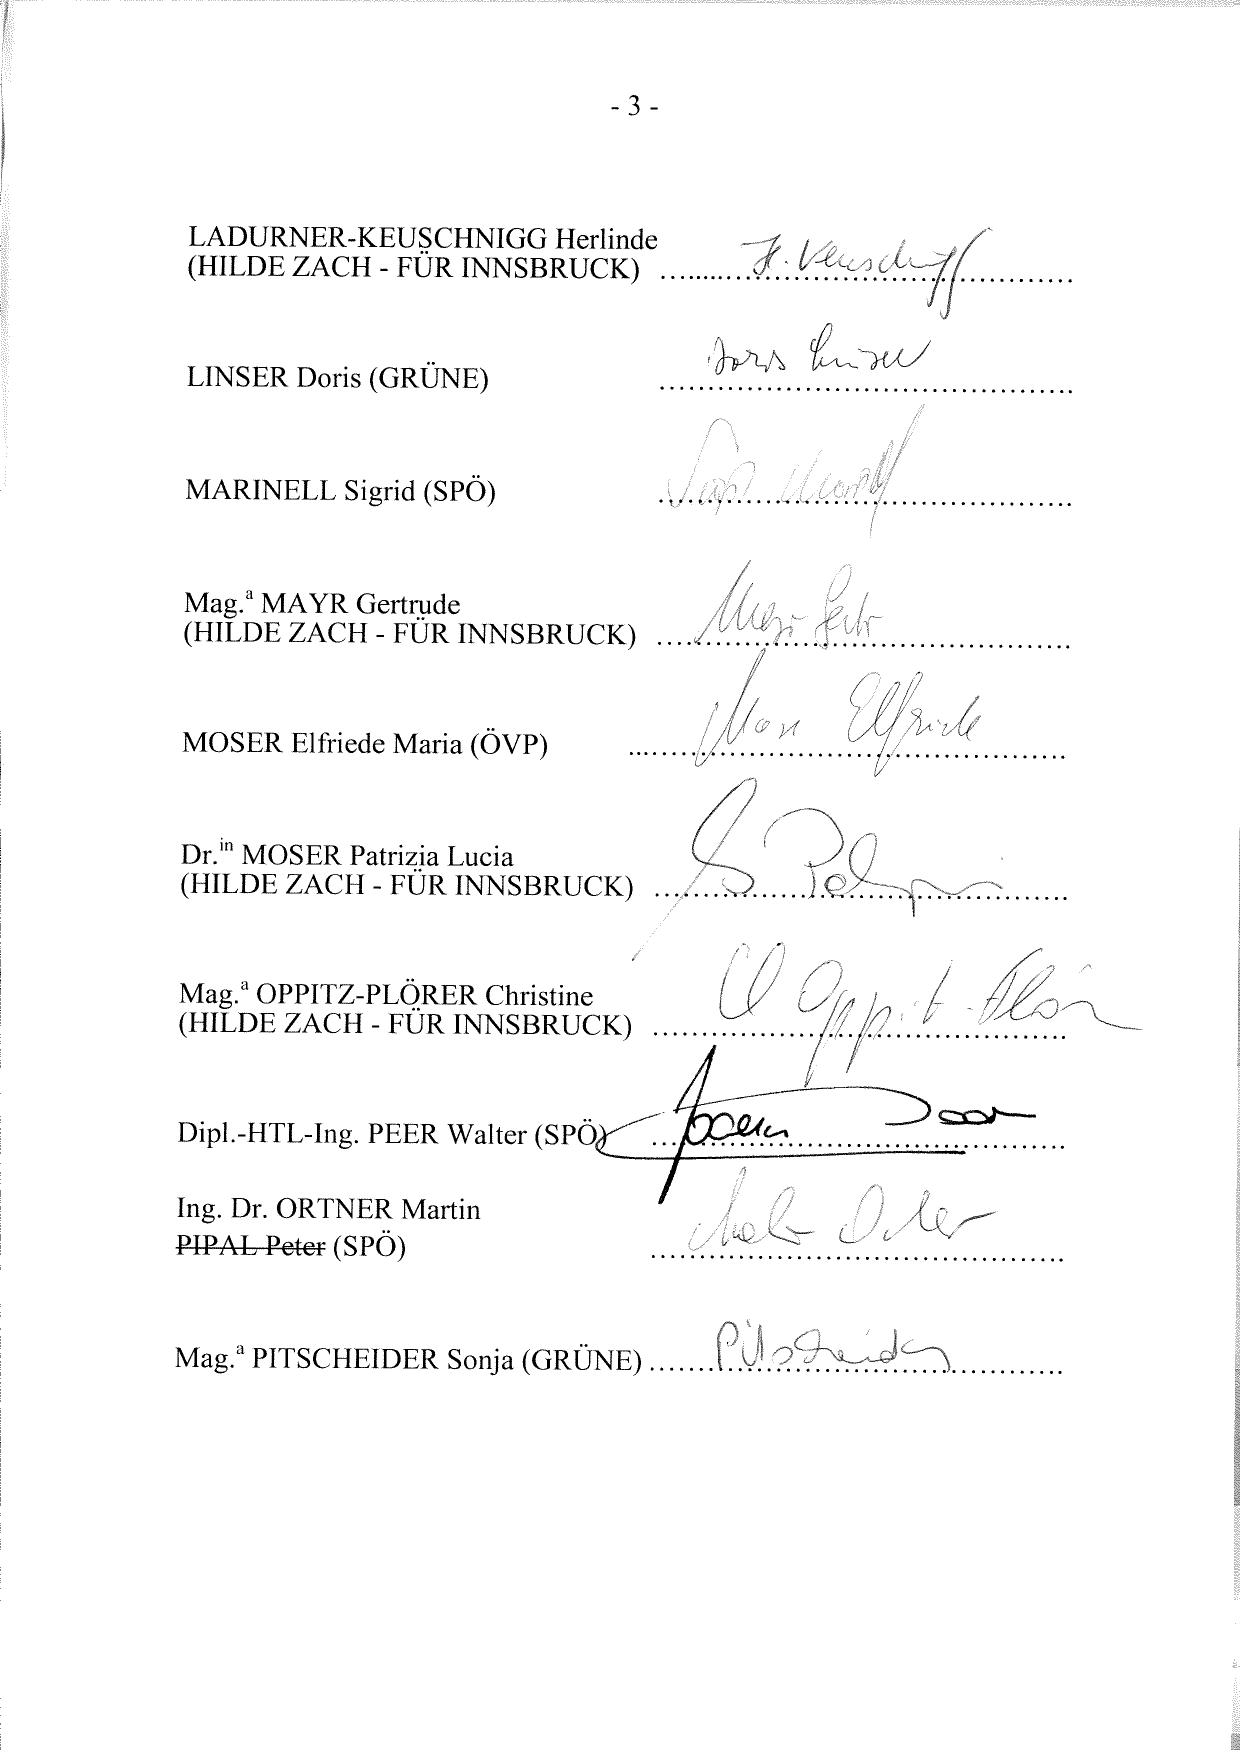 - 3 -
LADURNER-KEUSCHNIGG Herlinde
(HILDE ZACH - FÜR INNSBRUCK) ........................................
LINSER Doris (GRÜNE) ........................................
Doris Linser
MARINELL Sigrid (SPÖ) ........................................
Mag.ª MAYR Gertrude
(HILDE ZACH - FÜR INNSBRUCK) ........................................
MOSER Elfriede Maria (ÖVP) ........................................
Moser Elfriede
Dr.in MOSER Patrizia Lucia
(HILDE ZACH - FÜR INNSBRUCK) ........................................
Mag.ª OPPITZ-PLÖRER Christine
(HILDE ZACH - FÜR INNSBRUCK) ........................................
Dipl.-HTL-Ing. PEER Walter (SPÖ) ........................................
Ing. Dr. ORTNER Martin
PIPAL Peter (SPÖ) ........................................
Mag.ª PITSCHEIDER Sonja (GRÜNE) ........................................
Pitscheider